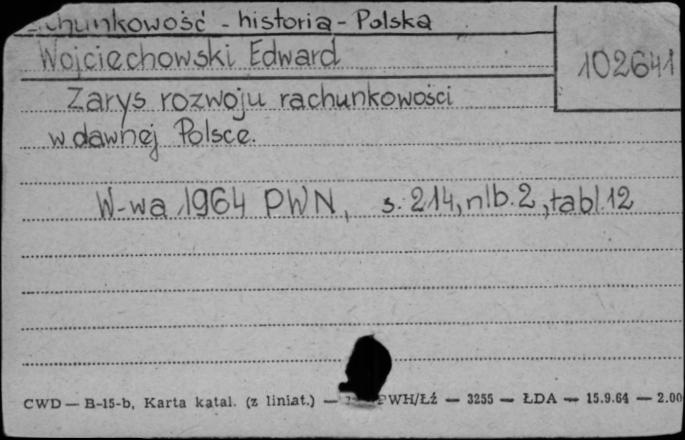 chunkowość - historia - Polska
Wojciechowski Edward
102641
Zarys rozwoju rachunkowości
w dawnej Polsce.
W-wa 1964 PWN, s. 214, nlb. 2, tabl. 12
CWD — B-15-b, Karta katal. (z liniat.) — PWH/Łź — 3255 — ŁDA — 15.9.64 — 2.00